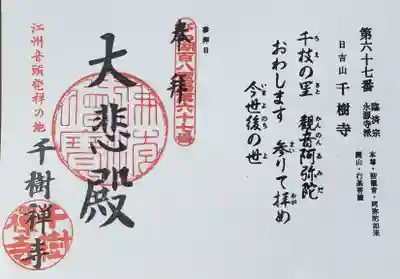 第六十七番
臨済宗
永源寺派
本尊・聖観音・阿弥陀如来
開山・行基菩薩
日吉山 千樹寺
千枝の里 観音阿弥陀
おわします 参りて拝め
今世後の世
参拝日
奉拝
大悲殿
江州音頭発祥の地
千樹禅寺